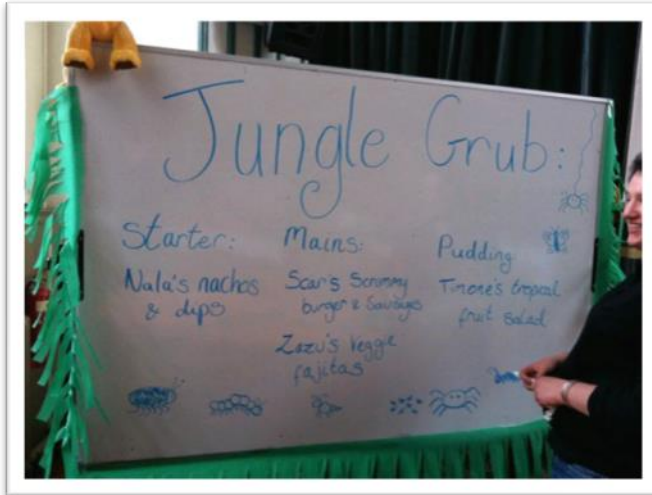 Jungle Grub:
Starter:
Nala's nachos
& dips
Mains:
Scar's Scrummy
burger & Sausages
Zazu's veggie
fajitas
Pudding
Timone's tropical
fruit salad